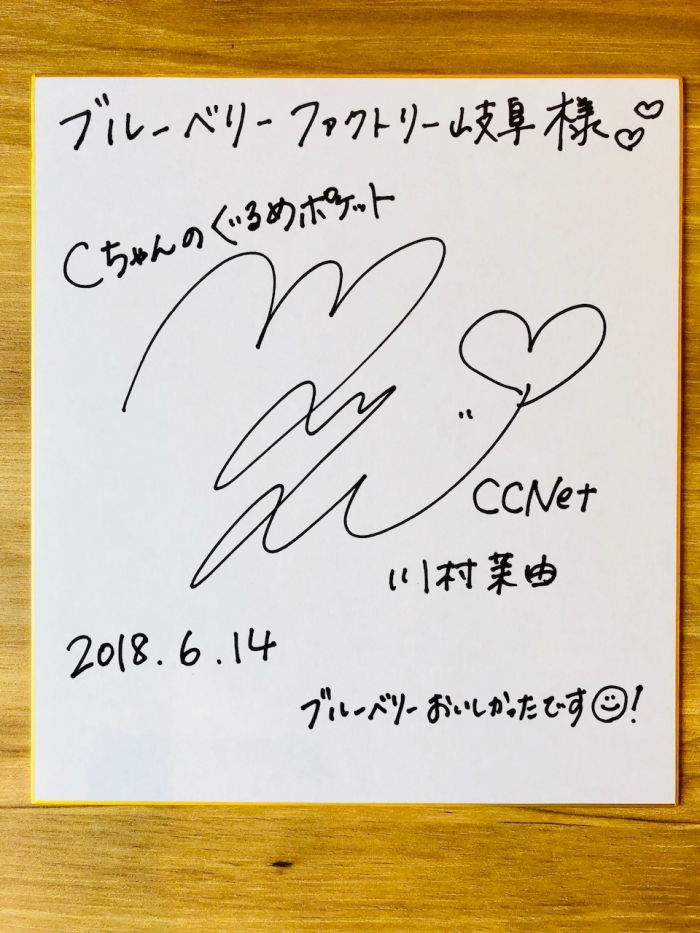 ブルーベリーファクトリー岐阜様♡♡
Cちゃんのぐるめポケット
CCNet
川村茉由
2018.6.14
ブルーベリーおいしかったです☺!